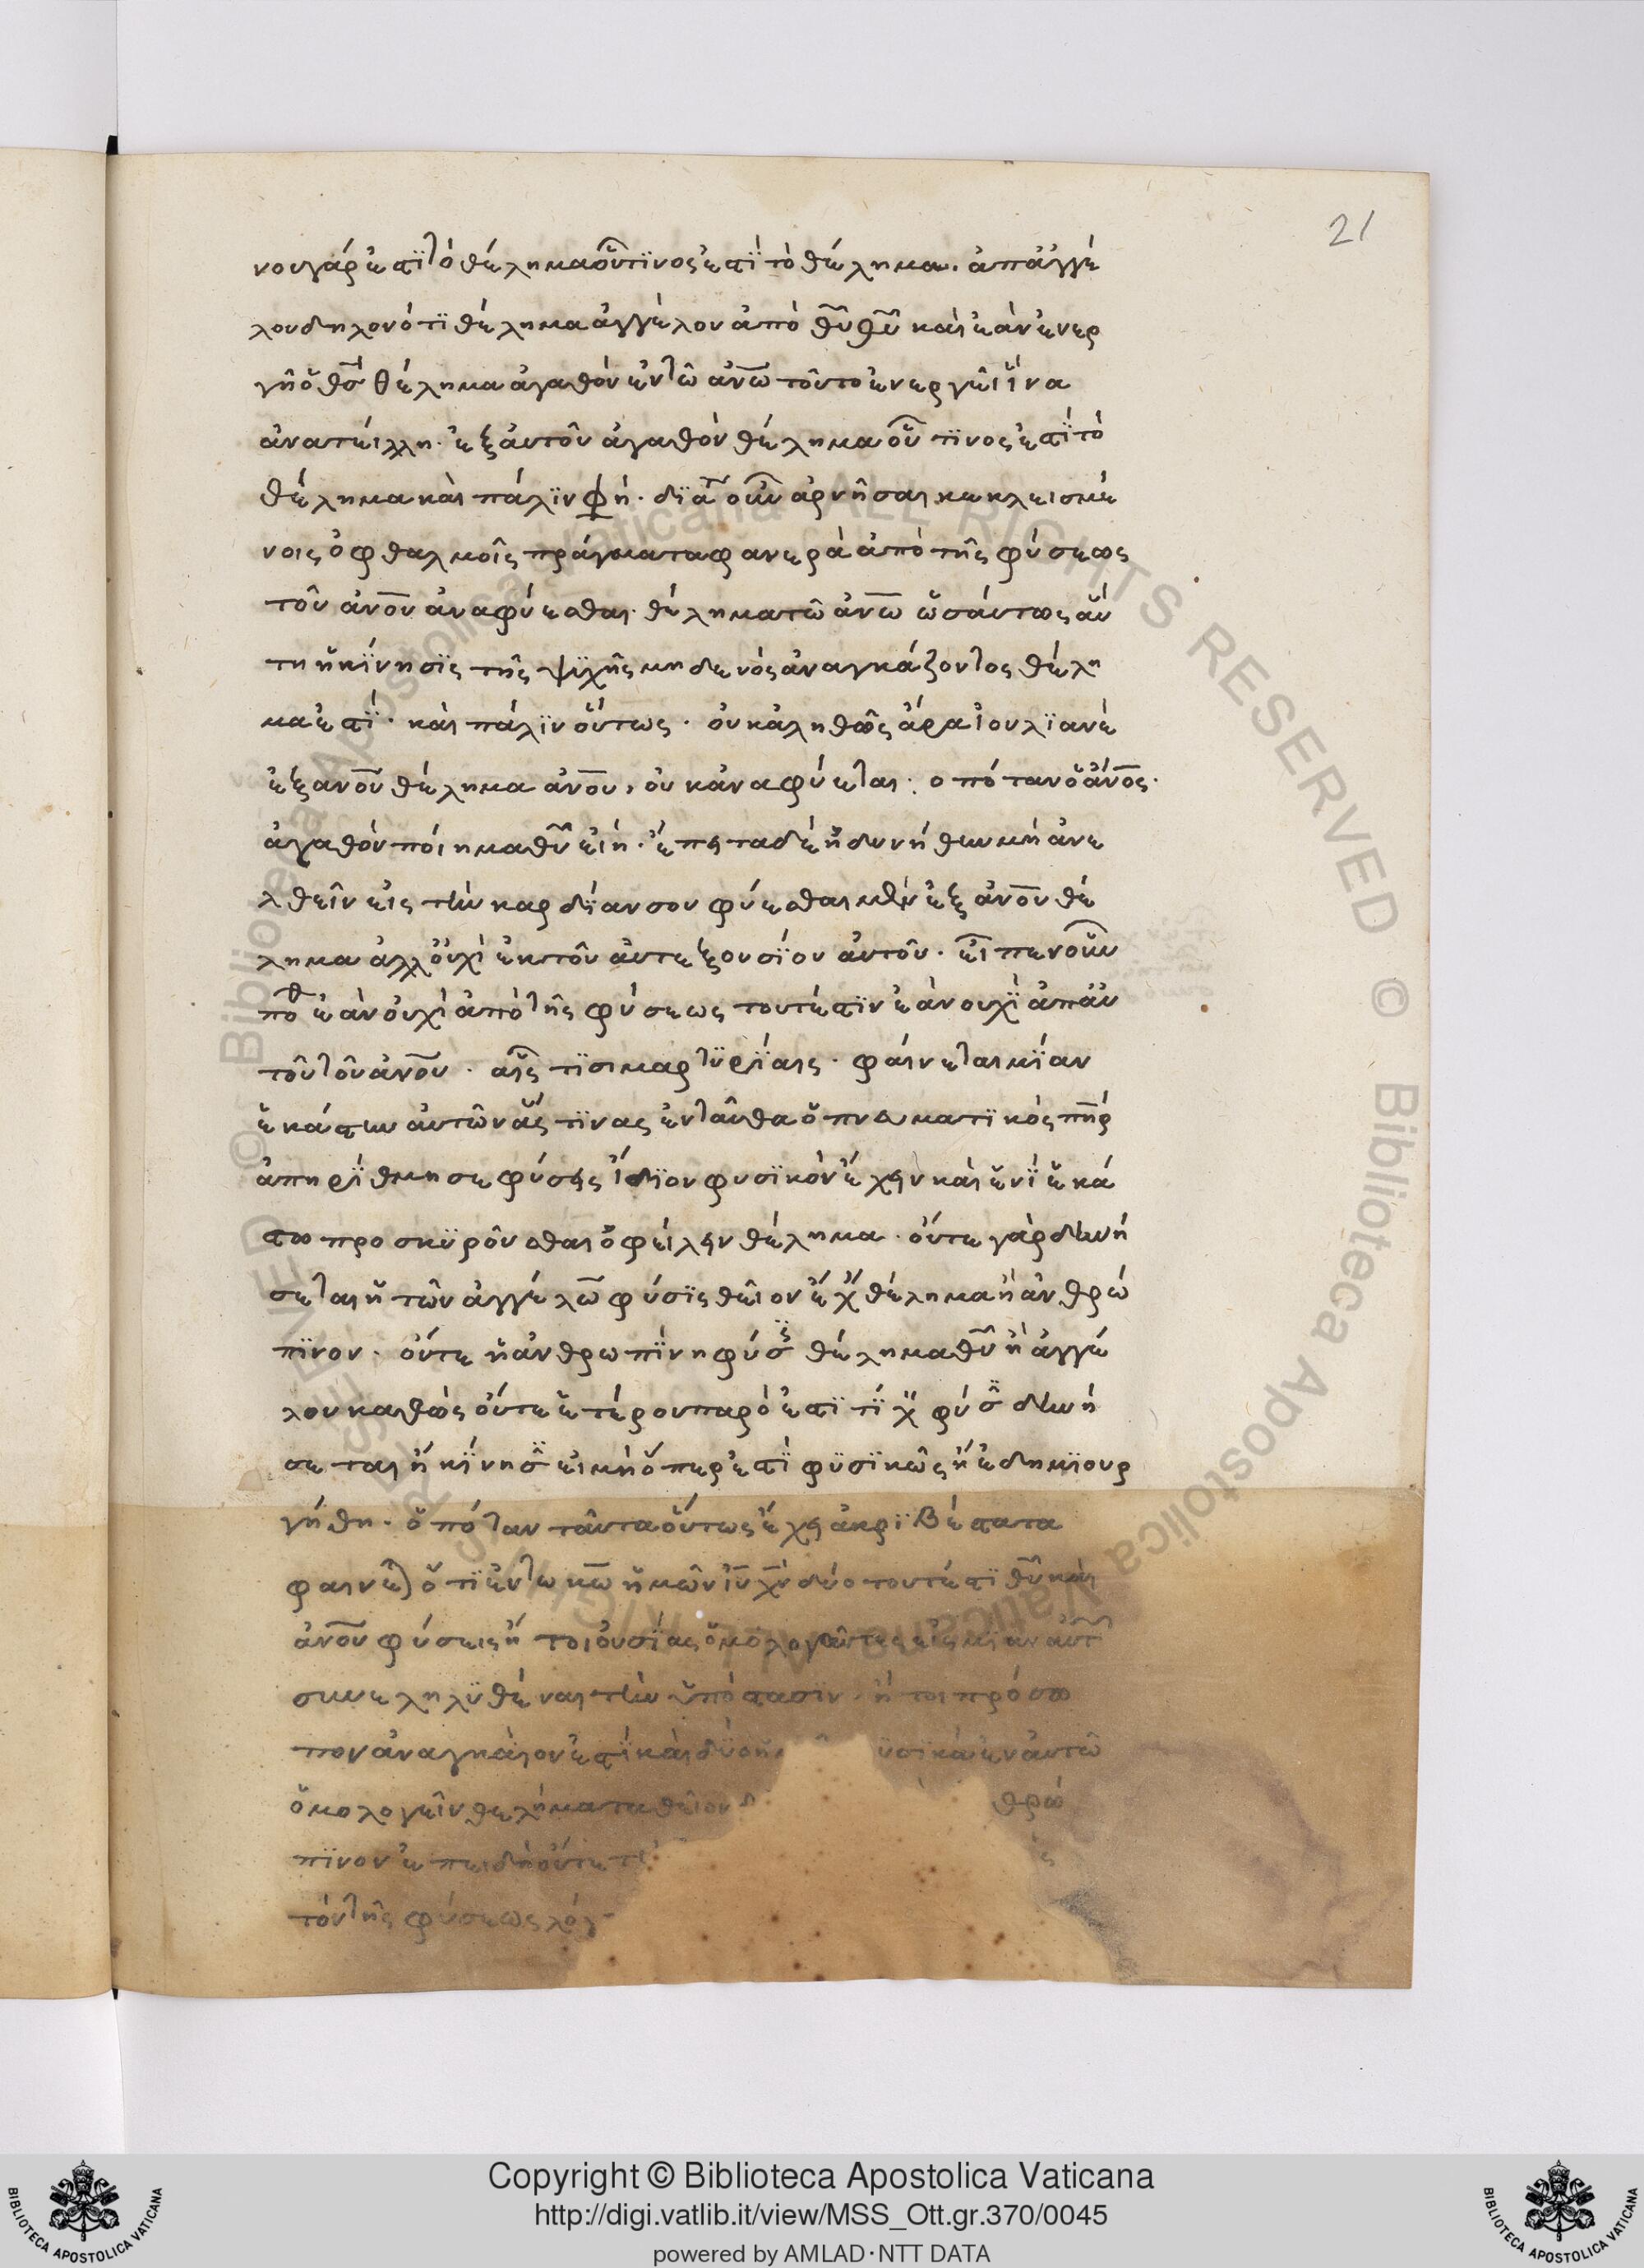 21
νου γάρ ἐστι τὸ θέλημα οὗτινος ἐστὶ τὸ θέλημα. ἀπ ἀγγέ
λου δηλονότι θέλημα ἀγγέλου ἀπὸ θυ θυ καὶ ἐὰν ἐνερ
γῆ ὁ θσ θέλημα ἀγαθὸν ἐν τῶ ἀνω τοῦτο ἐνεργεῖ ἵνα
ἀνατείλλη. ἐξ αὐτοῦ ἀγαθὸν θέλημα οὗ τινος ἐστὶ τὸ
θέλημα καὶ πάλϊν φή. δϊατ οὖν ἀρνῆσαι κεκλεισμέ
νοις ὀφθαλμοῖς πράγματα φανερὰ ἀπὸ τῆς φύσεως
τοῦ ἀνου ἀναφύεσθαι θέλημα τῶ ἀνω ὡσάυτως αὕ
τη ἡ κίνησϊς τῆς ψϋχῆς μηδενὸς ἀναγκάζοντος θέλη
μα ἐστϊ. καὶ πάλϊν οὕτως. οὐκ ἀληθῶς ἄρα ἰουλϊανὲ
ἐξ ανου θέλημα ἀνου, οὐκ ἀναφύεται. οπόταν ὁ ἀνος.
ἀγαθὸν πόιημα θυ εἴη. ἔπειτα δὲ ἠδυνήθην μὴ ἀνε
λθεῖν εἰς τὴν καρδϊαν σου φύεσθαι μὲν ἐξ ἀνου θέ
λημα ἀλλ οὐχὶ ἐκ τοῦ ἀυτεξουσϊου ἀυτοῦ. εἴπεν οὖν
ποθ ἐὰν οὐχὶ ἀπὸ τῆς φύσεως τουτέστϊν ἐὰν ουχϊ ἀπ άυ
τοῦ τοῦ ἀνου. αἷς τϊσι μαρτϋρϊαις. φάινεται μϊαν
ἑκάστην ἀυτῶν ἅς τϊνας ἐνταῦθα ὁ πνευματϊκὸς πηρ
ἀπηρϊθμησε φύσεις ἴδϊον φυσϊκὸν ἔχειν καὶ ἑνϊ ἑκά
στω προσκϋροῦσθαι ὀφέιλειν θέλημα. οὔτε γὰρ δυνή
σεται ἡ τῶν ἀγγέλω φύσϊς θεῖον ἔχ θέλημα ἢ ἀνθρώ
πϊνον. οὔτε ἡ ἀνθρωπϊνη φύσ θέλημα θυ ἢ ἀγγέ
λου καθὼς οὔτε ἑτέρου παρ ὅ ἐστϊ τϊ χ φύσ δυνή
σεται ἡ κϊνησ εἰ μὴ ὅπερ ἐστϊ φϋσϊκῶς ἢ ἐδημϊουρ
γήθη. ὁπόταν ταῦτα οὕτως ἔχει ἀκρϊβέστατα
φαινετ ὅτϊ ἐν τω κω ἡμῶν ιυ χν δύο τουτέστϊ θυ καὶ
ἀνου φύσεις ἤτοι οὐσϊας ὁμολογοῦντες εἰς μϊαν ἀυτ
συνεληλϋθέναι τὴν ὑπόστασϊν. ἤτοι πρόσω
πον ἀναγκαῖον ἐστϊ καὶ δύο ϋσϊκὰ ἐν ἀυτῶ
ὁμολογεῖν θελήματα θεῖον θρώ
πϊνον ἐπειδὴ οὔτε
τὸν τῆς φύσεως λόγ
Copyright © Biblioteca Apostolica Vaticana
http://digi.vatlib.it/view/MSS_Ott.gr.370/0045
powered by AMLAD·NTT DATA
BIBLIOTECA APOSTOLICA VATICANA
BIBLIOTECA APOSTOLICA VATICANA
© Biblioteca Apostolica Vaticana ALL RIGHTS RESERVED © Biblioteca Apostolica Vaticana ALL RIGHTS RESERVED